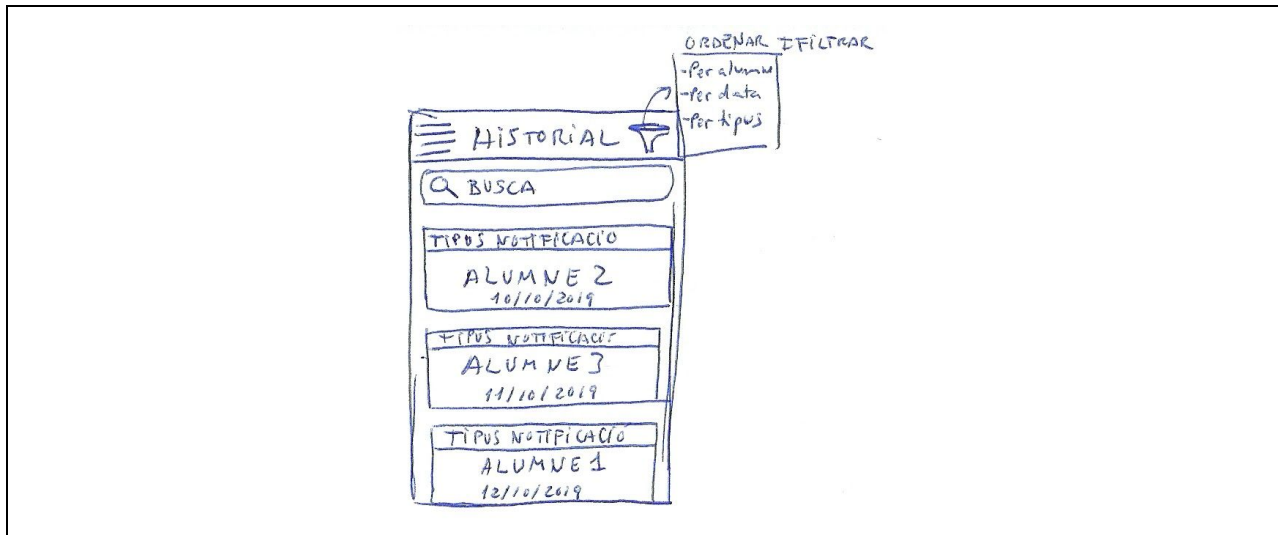 ORDENAR I FILTRAR
-Per alumne
-Per data
-Per tipus
HISTORIAL
BUSCA
TIPUS NOTIFICACIÓ
ALUMNE 2
10/10/2019
TIPUS NOTIFICACIÓ
ALUMNE 3
11/10/2019
TIPUS NOTIFICACIÓ
ALUMNE 1
12/10/2019